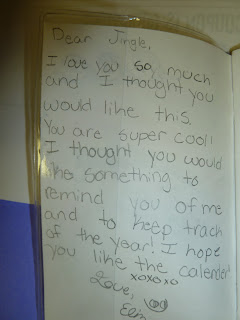 Dear Jingle,
I love you so much
and I thought you
would like this.
You are super cool!
I thought you would
like something to
remind you of me
and to keep track
of the year! I hope
you like the calender!
xoxoxo
Love,